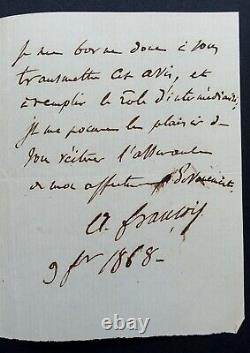 Je me borne donc à vous
transmettre cet avis, et
à remplir le rôle d'intermédiaire,
je me procure le plaisir de
vous réitérer l'assurance
de mon affectueux dévouement.
A. François
9 fr 1868 -